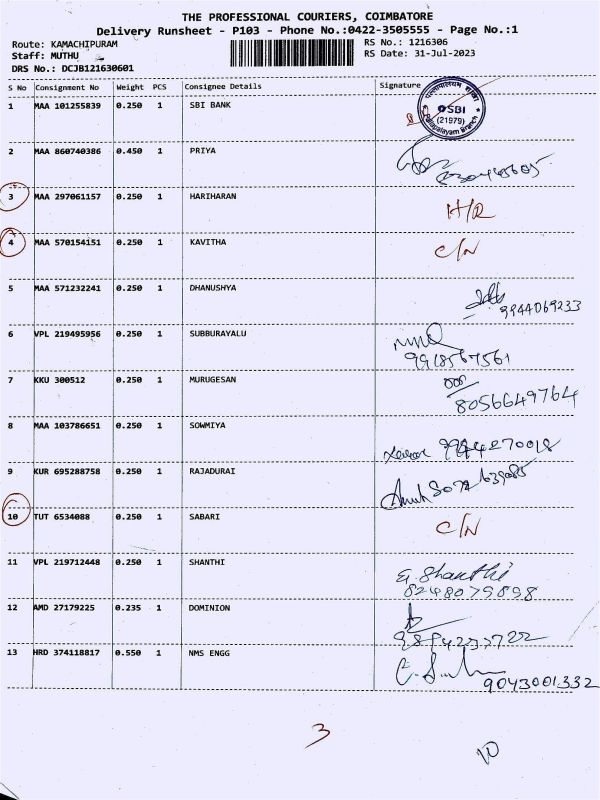 THE PROFESSIONAL COURIERS, COIMBATORE
Delivery Runsheet - P103 - Phone No.:0422-3505555 - Page No.:1
Route: KAMACHIPURAM
Staff: MUTHU
DRS No.: DCJB121630601
RS No.: 1216306
RS Date: 31-Jul-2023
S No Consignment No Weight PCS Consignee Details Signature
1 MAA 101255839 0.250 1 SBI BANK
SBI
(21979)
2 MAA 860740386 0.450 1 PRIYA
3 MAA 297061157 0.250 1 HARIHARAN H/R
4 MAA 570154151 0.250 1 KAVITHA C/N
5 MAA 571232241 0.250 1 DHANUSHYA
9944069233
6 VPL 219495956 0.250 1 SUBBURAYALU
9918567561
7 KKU 300512 0.250 1 MURUGESAN
8056649764
8 MAA 103786651 0.250 1 SOWMIYA
9944270018
9 KUR 695288758 0.250 1 RAJADURAI
10 TUT 6534088 0.250 1 SABARI C/N
11 VPL 219712448 0.250 1 SHANTHI G. Shanthi
8248079898
12 AMD 27179225 0.235 1 DOMINION
13 HRD 374118817 0.550 1 NMS ENGG
9043001332
3
10